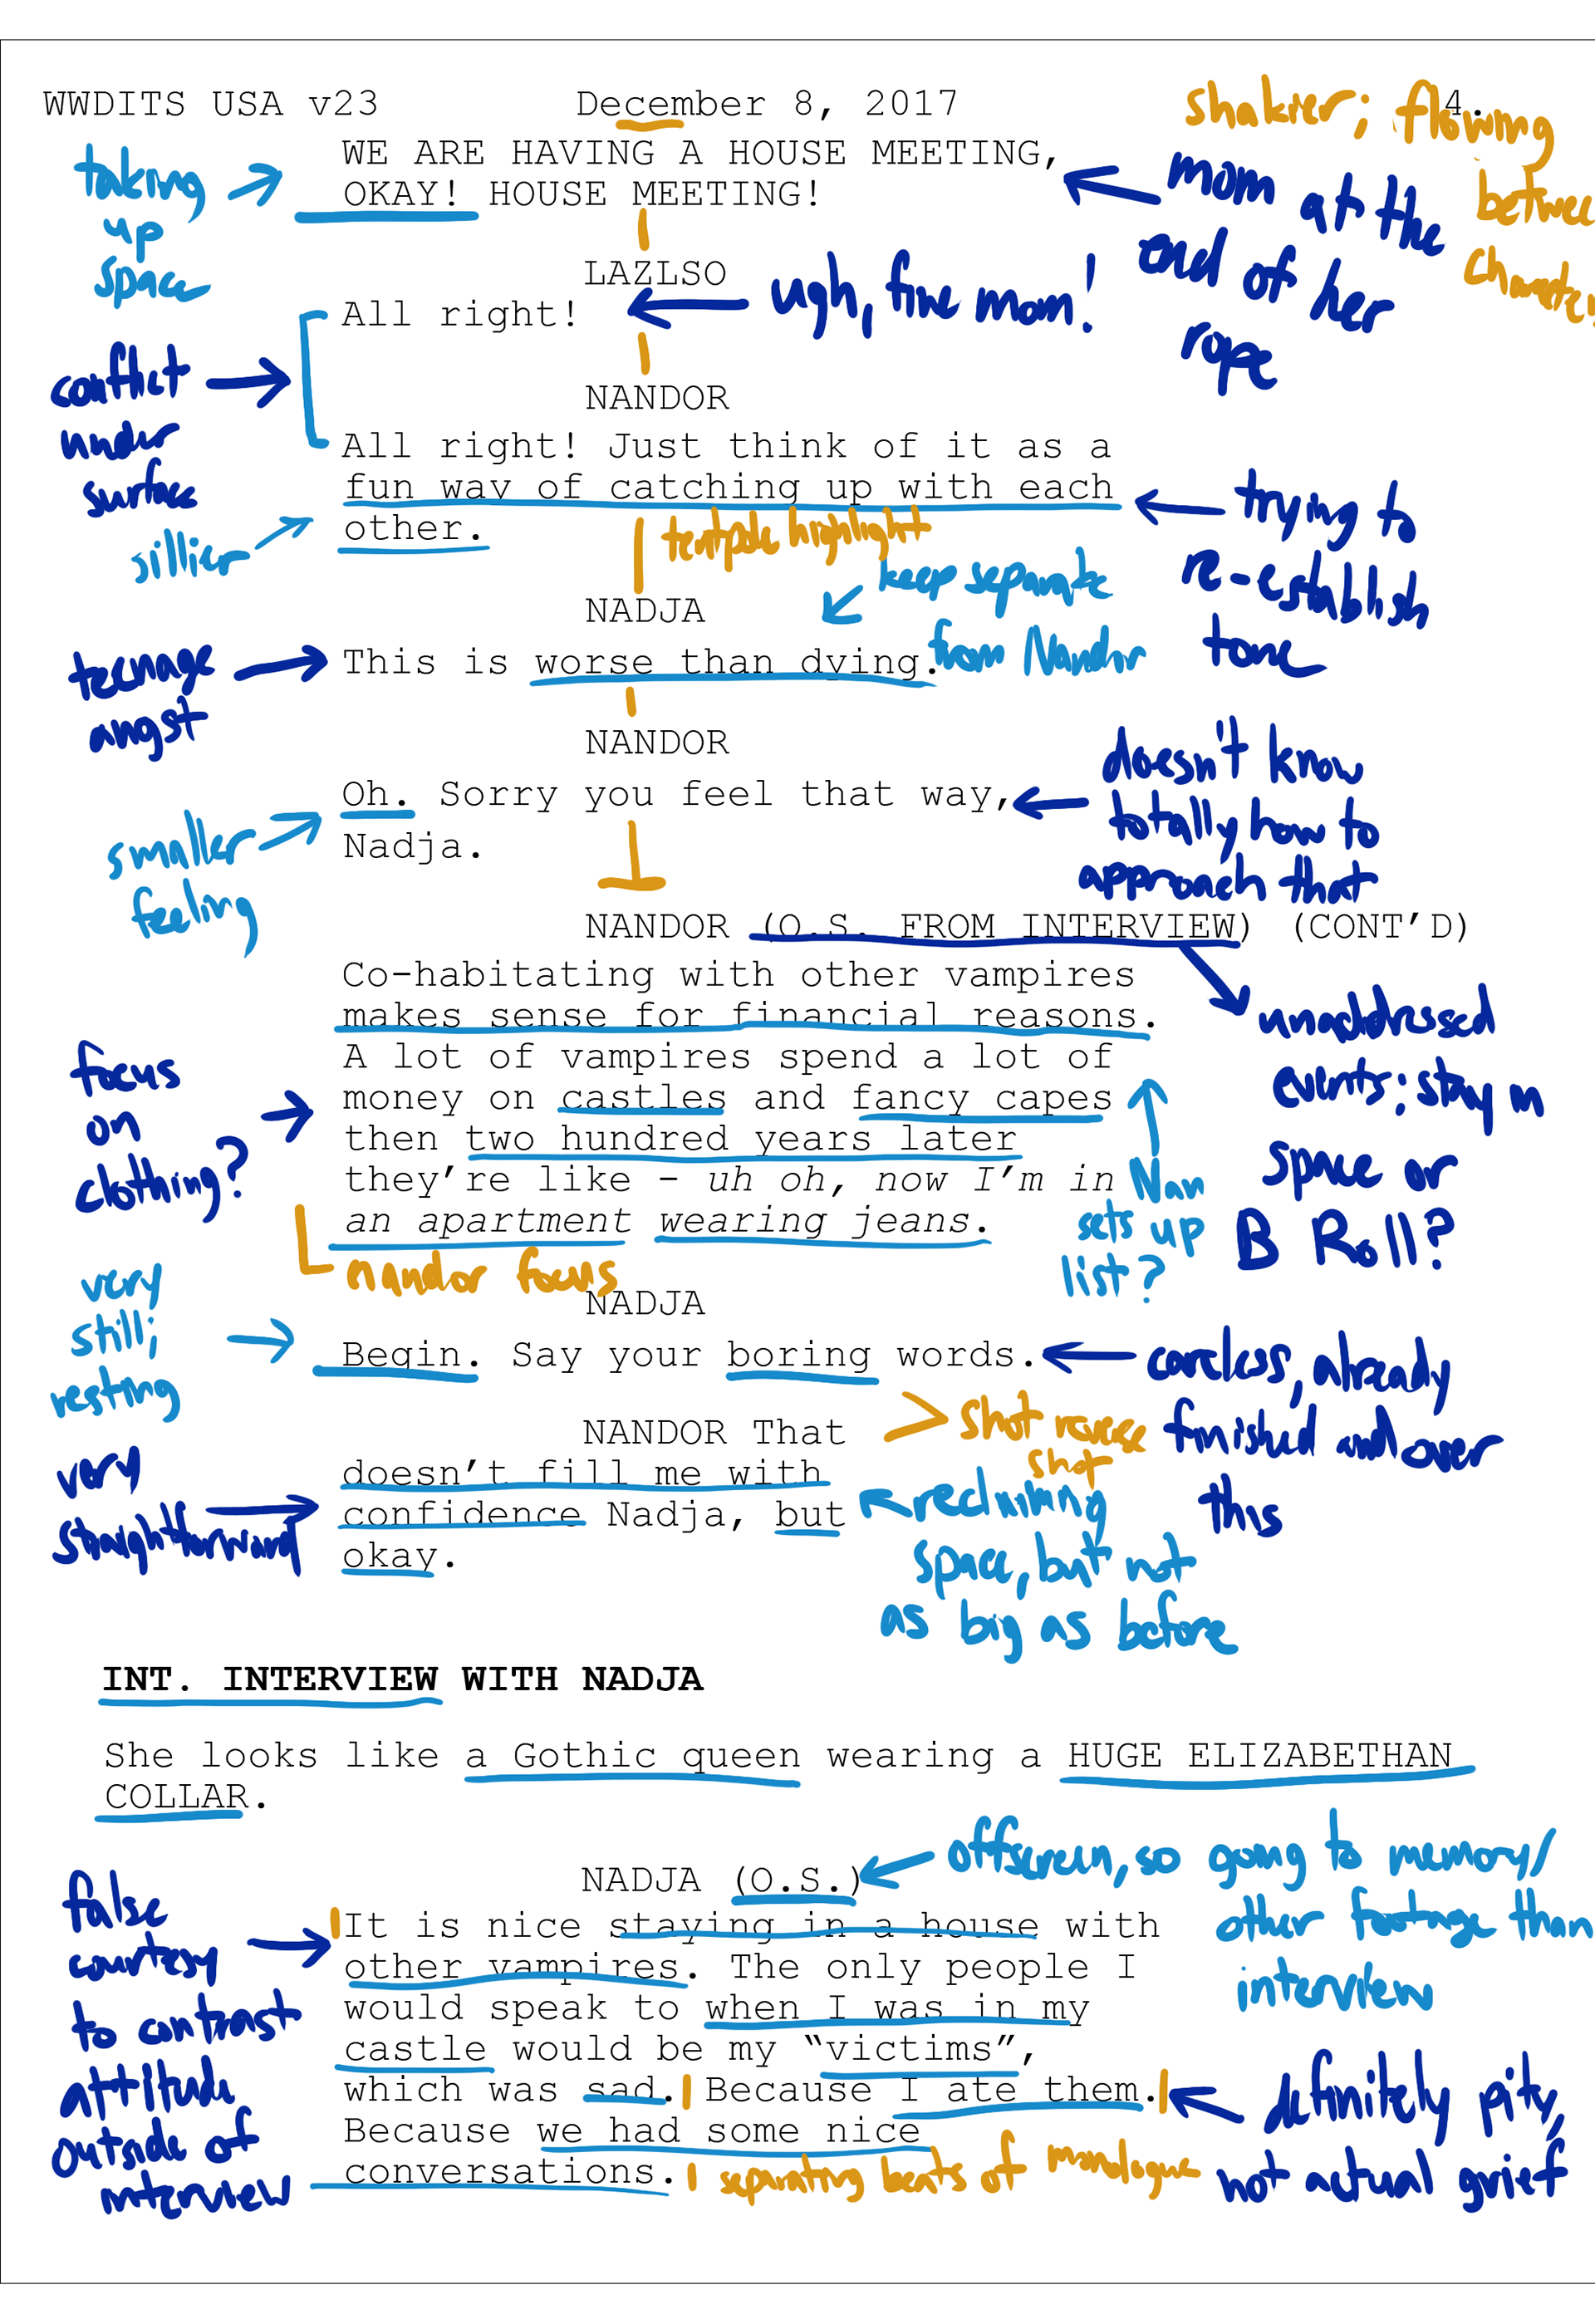 WWDITS USA v23 December 8, 2017 4.
shakier; flowing
between
WE ARE HAVING A HOUSE MEETING,
OKAY! HOUSE MEETING!
taking
up
space
mom at the
end of her
rope
LAZLSO
All right!
ugh, fine mom!
conflict
under
surface
NANDOR
All right! Just think of it as a
fun way of catching up with each
other.
sillier
tentpole highlight
trying to
re-establish
tone
keep separate
from Nandor
NADJA
This is worse than dying.
teenage
angst
NANDOR
Oh. Sorry you feel that way,
Nadja.
smaller
feeling
doesn't know
totally how to
approach that
NANDOR (O.S. FROM INTERVIEW) (CONT’D)
Co-habitating with other vampires
makes sense for financial reasons.
A lot of vampires spend a lot of
money on castles and fancy capes
then two hundred years later
they’re like - uh oh, now I’m in
an apartment wearing jeans.
unaddressed
events; stay in
space or
B Roll?
focus
on
clothing?
Nan
sets up
list?
nandor focus
NADJA
Begin. Say your boring words.
very
still;
resting
careless, already
finished and over
this
shot reverse
shot
NANDOR That
doesn’t fill me with
confidence Nadja, but
okay.
very
straightforward
reclaiming
space, but not
as big as before
INT. INTERVIEW WITH NADJA
She looks like a Gothic queen wearing a HUGE ELIZABETHAN
COLLAR.
NADJA (O.S.)
offscreen, so going to memory/
other footage than
interview
It is nice staying in a house with
other vampires. The only people I
would speak to when I was in my
castle would be my “victims”,
which was sad. Because I ate them.
Because we had some nice
conversations.
false
courtesy
to contrast
attitude
outside of
interview
definitely pity,
not actual grief
separating beats of monologue